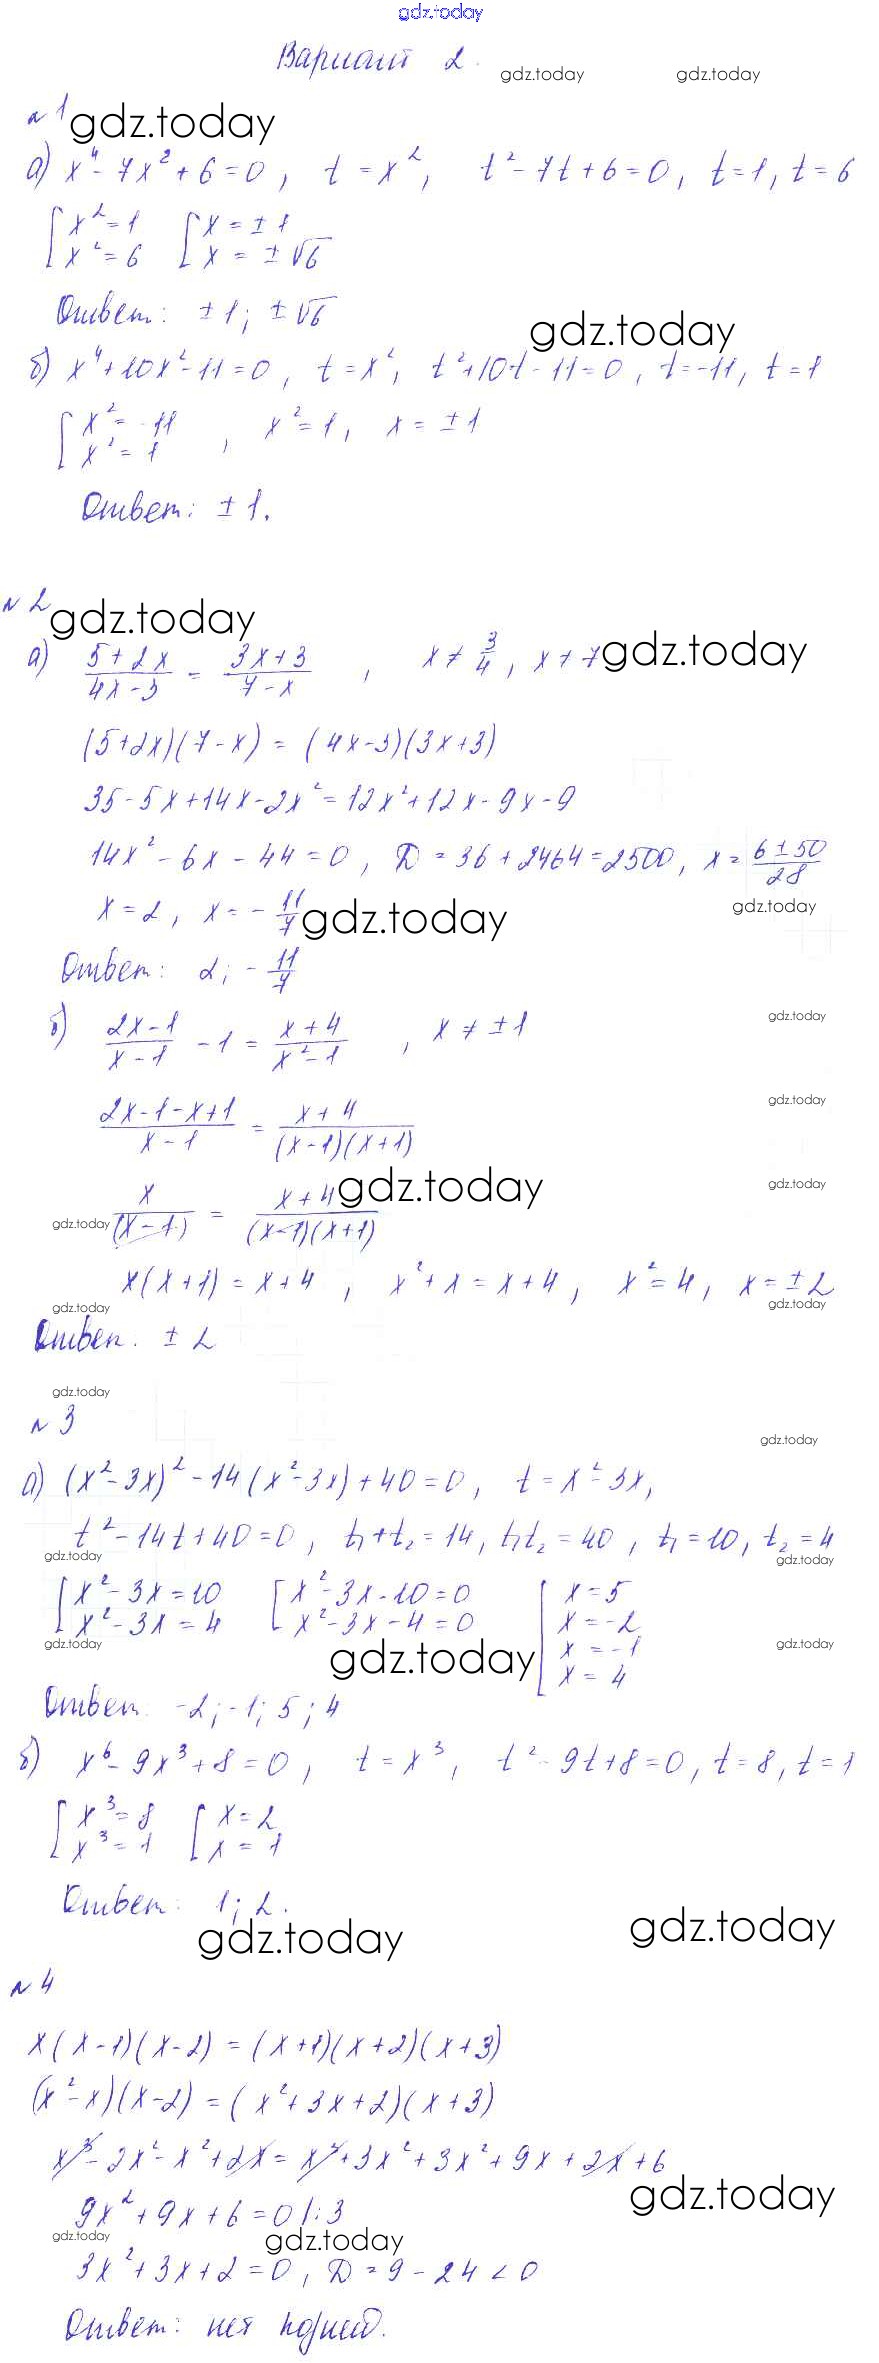 gdz.today
Вариант 2.
gdz.today gdz.today
№1 gdz.today
а) x⁴ - 7x² + 6 = 0, t = x², t² - 7t + 6 = 0, t = 1, t = 6
[x² = 1 [x = ± 1
[x² = 6 [x = ± √6
Ответ: ± 1; ± √6
gdz.today
б) x⁴ + 10x² - 11 = 0, t = x², t² + 10t - 11 = 0, t = -11, t = 1
[x² = -11
[x² = 1 , x² = 1, x = ± 1
Ответ: ± 1.
№2 gdz.today
а) (5+2x)/(4x-3) = (3x+3)/(7-x) , x ≠ 3/4, x ≠ 7 gdz.today
(5+2x)(7-x) = (4x-3)(3x+3)
35 - 5x + 14x - 2x² = 12x² + 12x - 9x - 9
14x² - 6x - 44 = 0, D = 36 + 2464 = 2500, x = (6 ± 50)/28
x = 2, x = - 11/7 gdz.today gdz.today
Ответ: 2; - 11/7
б) (2x-1)/(x-1) - 1 = (x+4)/(x²-1) , x ≠ ± 1 gdz.today
(2x-1-x+1)/(x-1) = (x+4)/((x-1)(x+1)) gdz.today
x/(x-1) = (x+4)/((x-1)(x+1)) gdz.today gdz.today
gdz.today
x(x+1) = x+4 , x² + x = x+4, x² = 4, x = ± 2
gdz.today gdz.today
Ответ. ± 2
gdz.today
№3
gdz.today
а) (x² - 3x)² - 14(x² - 3x) + 40 = 0, t = x² - 3x,
t² - 14t + 40 = 0, t₁ + t₂ = 14, t₁t₂ = 40, t₁ = 10, t₂ = 4
gdz.today gdz.today
[x² - 3x = 10 [x² - 3x - 10 = 0 [x = 5
[x² - 3x = 4 [x² - 3x - 4 = 0 [x = -2
gdz.today gdz.today [x = -1 gdz.today
[x = 4
Ответ: -2; -1; 5; 4
б) x⁶ - 9x³ + 8 = 0, t = x³, t² - 9t + 8 = 0, t = 8, t = 1
[x³ = 8 [x = 2
[x³ = 1 [x = 1
Ответ: 1; 2.
gdz.today gdz.today
№4
x(x-1)(x-2) = (x+1)(x+2)(x+3)
(x² - x)(x-2) = (x² + 3x + 2)(x+3)
x³ - 2x² - x² + 2x = x³ + 3x² + 3x² + 9x + 2x + 6
gdz.today
9x² + 9x + 6 = 0 |:3
gdz.today gdz.today
3x² + 3x + 2 = 0, D = 9 - 24 < 0
Ответ: нет корней.